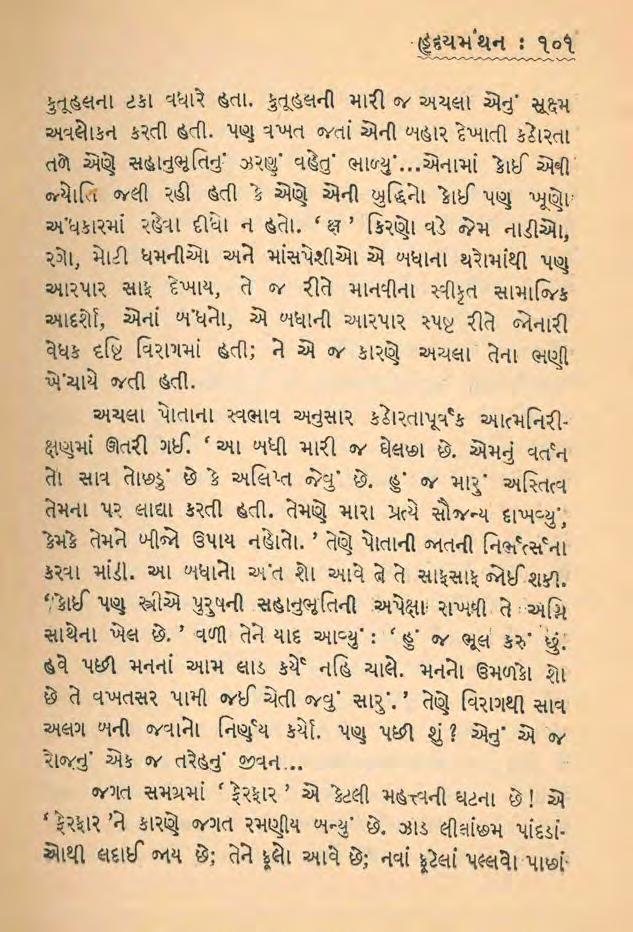 હૃદયમંથન : ૧૦૧
કુતૂહલના ટકા વધારે હતા. કુતૂહલની મારી જ અચલા એનું સૂક્ષ્મ
અવલોકન કરતી હતી. પણ વખત જતાં એની બહાર દેખાતી કઠોરતા
તળે એણે સહાનુભૂતિનું ઝરણું વહેતું ભાળ્યું...એનામાં કોઈ એવી
જ્યોતિ જલી રહી હતી કે એણે એની બુદ્ધિનો કોઈ પણ ખૂણો
અંધકારમાં રહેવા દીધો ન હતો. ‘ ક્ષ ’ કિરણો વડે જેમ નાડીઓ,
રગો, મોટી ધમનીઓ અને માંસપેશીઓ એ બધાના થરોમાંથી પણ
આરપાર સાફ દેખાય, તે જ રીતે માનવીના સ્વીકૃત સામાજિક
આદર્શો, એનાં બંધનો, એ બધાની આરપાર સ્પષ્ટ રીતે જોનારી
વેધક દૃષ્ટિ વિરાગમાં હતી; ને એ જ કારણે અચલા તેના ભણી
ખેંચાયે જતી હતી.
અચલા પોતાના સ્વભાવ અનુસાર કઠોરતાપૂર્વક આત્મનિરી-
ક્ષણમાં ઊતરી ગઈ. ‘ આ બધી મારી જ ઘેલછા છે. એમનું વર્તન
તો સાવ તોછડું છે કે અલિપ્ત જેવું છે. હું જ મારું અસ્તિત્વ
તેમના પર લાદ્યા કરતી હતી. તેમણે મારા પ્રત્યે સૌજન્ય દાખવ્યું,
કેમકે તેમને બીજો ઉપાય નહોતો. ’ તેણે પોતાની જાતની નિર્ભર્ત્સના
કરવા માંડી. આ બધાનો અંત શો આવે તે તે સાફસાફ જોઈ શકી.
‘ કોઈ પણ સ્ત્રીએ પુરુષની સહાનુભૂતિની અપેક્ષા રાખવી તે અગ્નિ
સાથેના ખેલ છે. ’ વળી તેને યાદ આવ્યું : ‘ હું જ ભૂલ કરું છું.
હવે પછી મનનાં આમ લાડ કર્યે નહિ ચાલે. મનનો ઉમળકો શો
છે તે વખતસર પામી જઈ ચેતી જવું સારું. ’ તેણે વિરાગથી સાવ
અલગ બની જવાનો નિર્ણય કર્યો. પણ પછી શું ? એનું એ જ
રોજનું એક જ તરેહનું જીવન...
જગત સમગ્રમાં ‘ ફેરફાર ’ એ કેટલી મહત્ત્વની ઘટના છે ! એ
‘ ફેરફાર ’ને કારણે જગત રમણીય બન્યું છે. ઝાડ લીલાંછમ પાંદડાં-
ઓથી લદાઈ જાય છે; તેને ફૂલો આવે છે; નવાં ફૂટેલાં પલ્લવો પાછાં